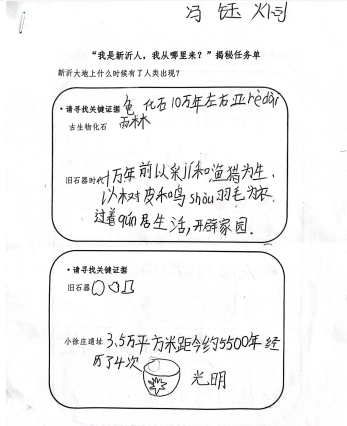 冯 钰
“我是新沂人，我从哪里来？”揭秘任务单
新沂大地上什么时候有了人类出现？
·请寻找关键证据 龟 化石10万年左右亚rèdài
古生物化石 雨林
旧石器时代 十万年前以采jí和渔猎为生，
以树皮和鸟shòu羽毛为衣.
过着qún居生活,开辟家园.
·请寻找关键证据
旧石器
小徐庄遗址 3.5万平方米距今约5500年 经
历了4次
光明